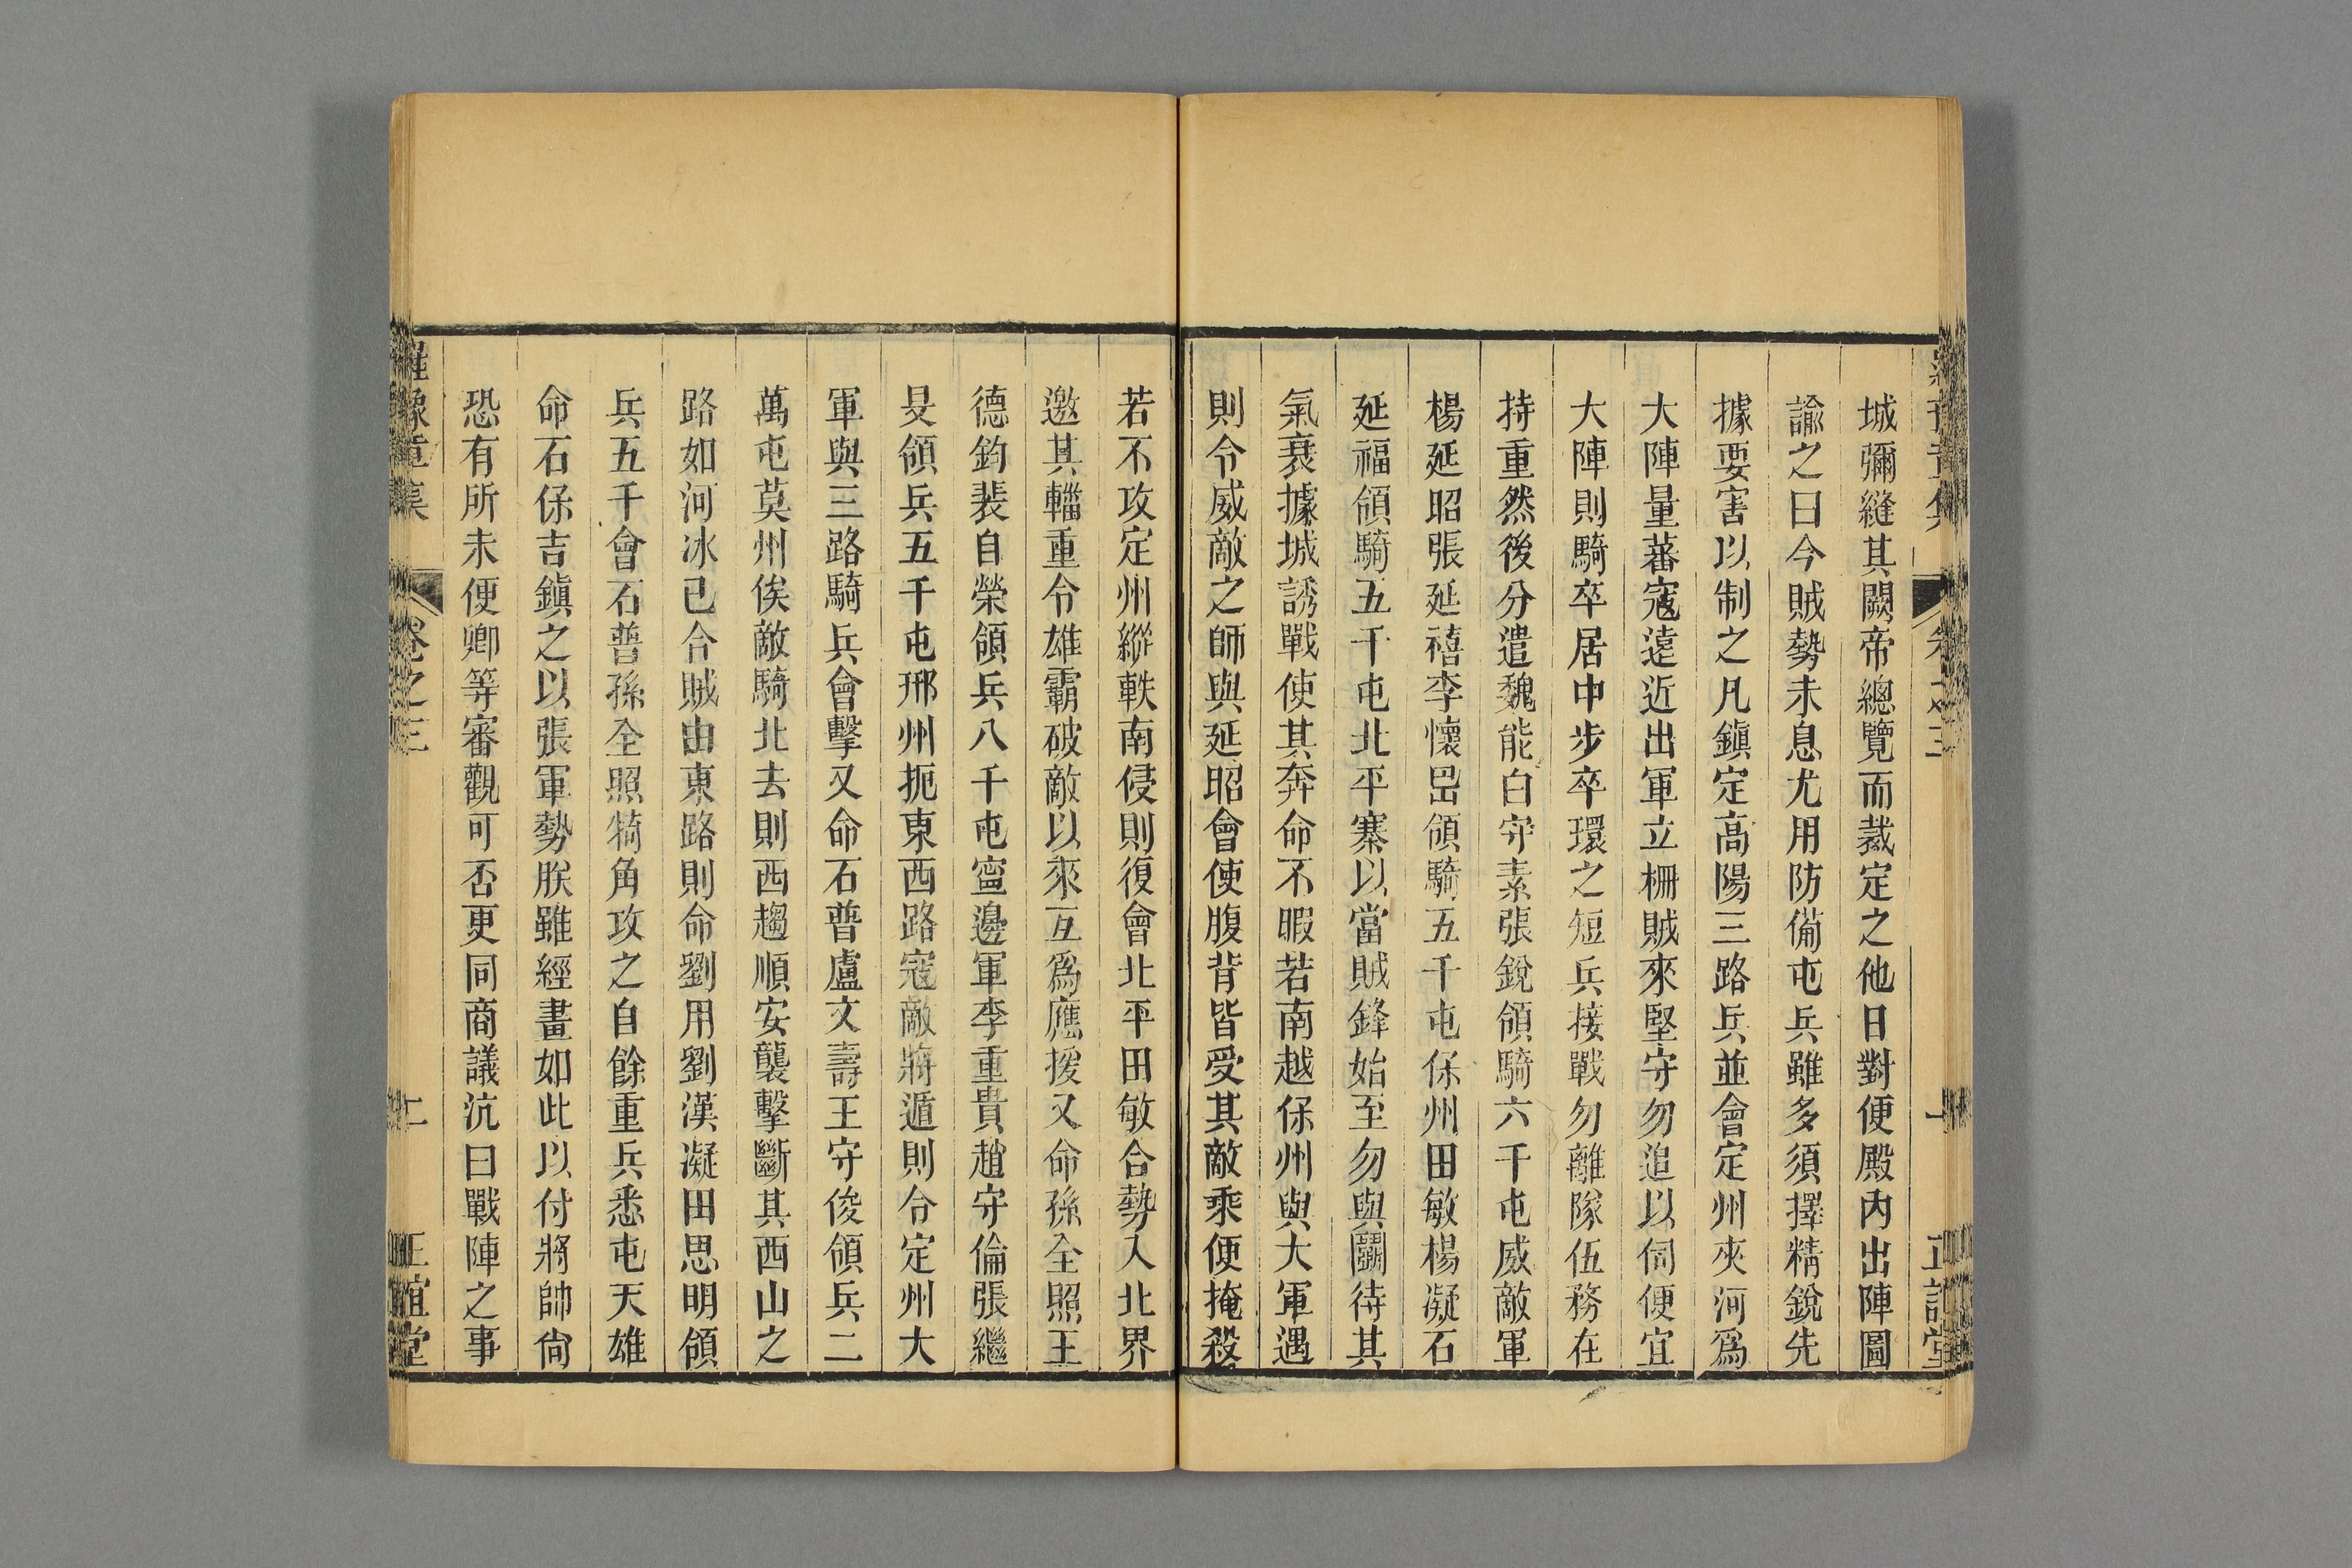 城彌縫其闕帝總覽而裁定之他日對便殿內出陣圖
諭之曰今賊勢未息尤用防備屯兵雖多須擇精銳先
據要害以制之凡鎭定高陽三路兵並會定州夾河爲
大陣量蕃寇遠近出軍立柵賊來堅守勿追以伺便宜
大陣則騎卒居中步卒環之短兵接戰勿離隊伍務在
持重然後分遣魏能白守素張銳領騎六千屯威敵軍
楊延昭張延禧李懷岊領騎五千屯保州田敏楊凝石
延福領騎五千屯北平寨以當賊鋒始至勿與鬬待其
氣衰據城誘戰使其奔命不暇若南越保州與大軍遇
則令威敵之師與延昭會使腹背皆受其敵乘便掩殺
若不攻定州縱軼南侵則復會北平田敏合勢入北界
邀其輜重令雄霸破敵以來互爲應援又命孫全照王
德鈞裴自榮領兵八千屯寧邊軍李重貴趙守倫張繼
旻領兵五千屯邢州扼東西路寇敵將遁則令定州大
軍與三路騎兵會擊又命石普盧文壽王守俊領兵二
萬屯莫州俟敵騎北去則西趨順安襲擊斷其西山之
路如河冰已合賊由東路則命劉用劉漢凝田思明領
兵五千會石普孫全照犄角攻之自餘重兵悉屯天雄
命石保吉鎭之以張軍勢朕雖經畫如此以付將帥尙
恐有所未便卿等審觀可否更同商議沆曰戰陣之事
羅豫章集 卷之三 正誼堂